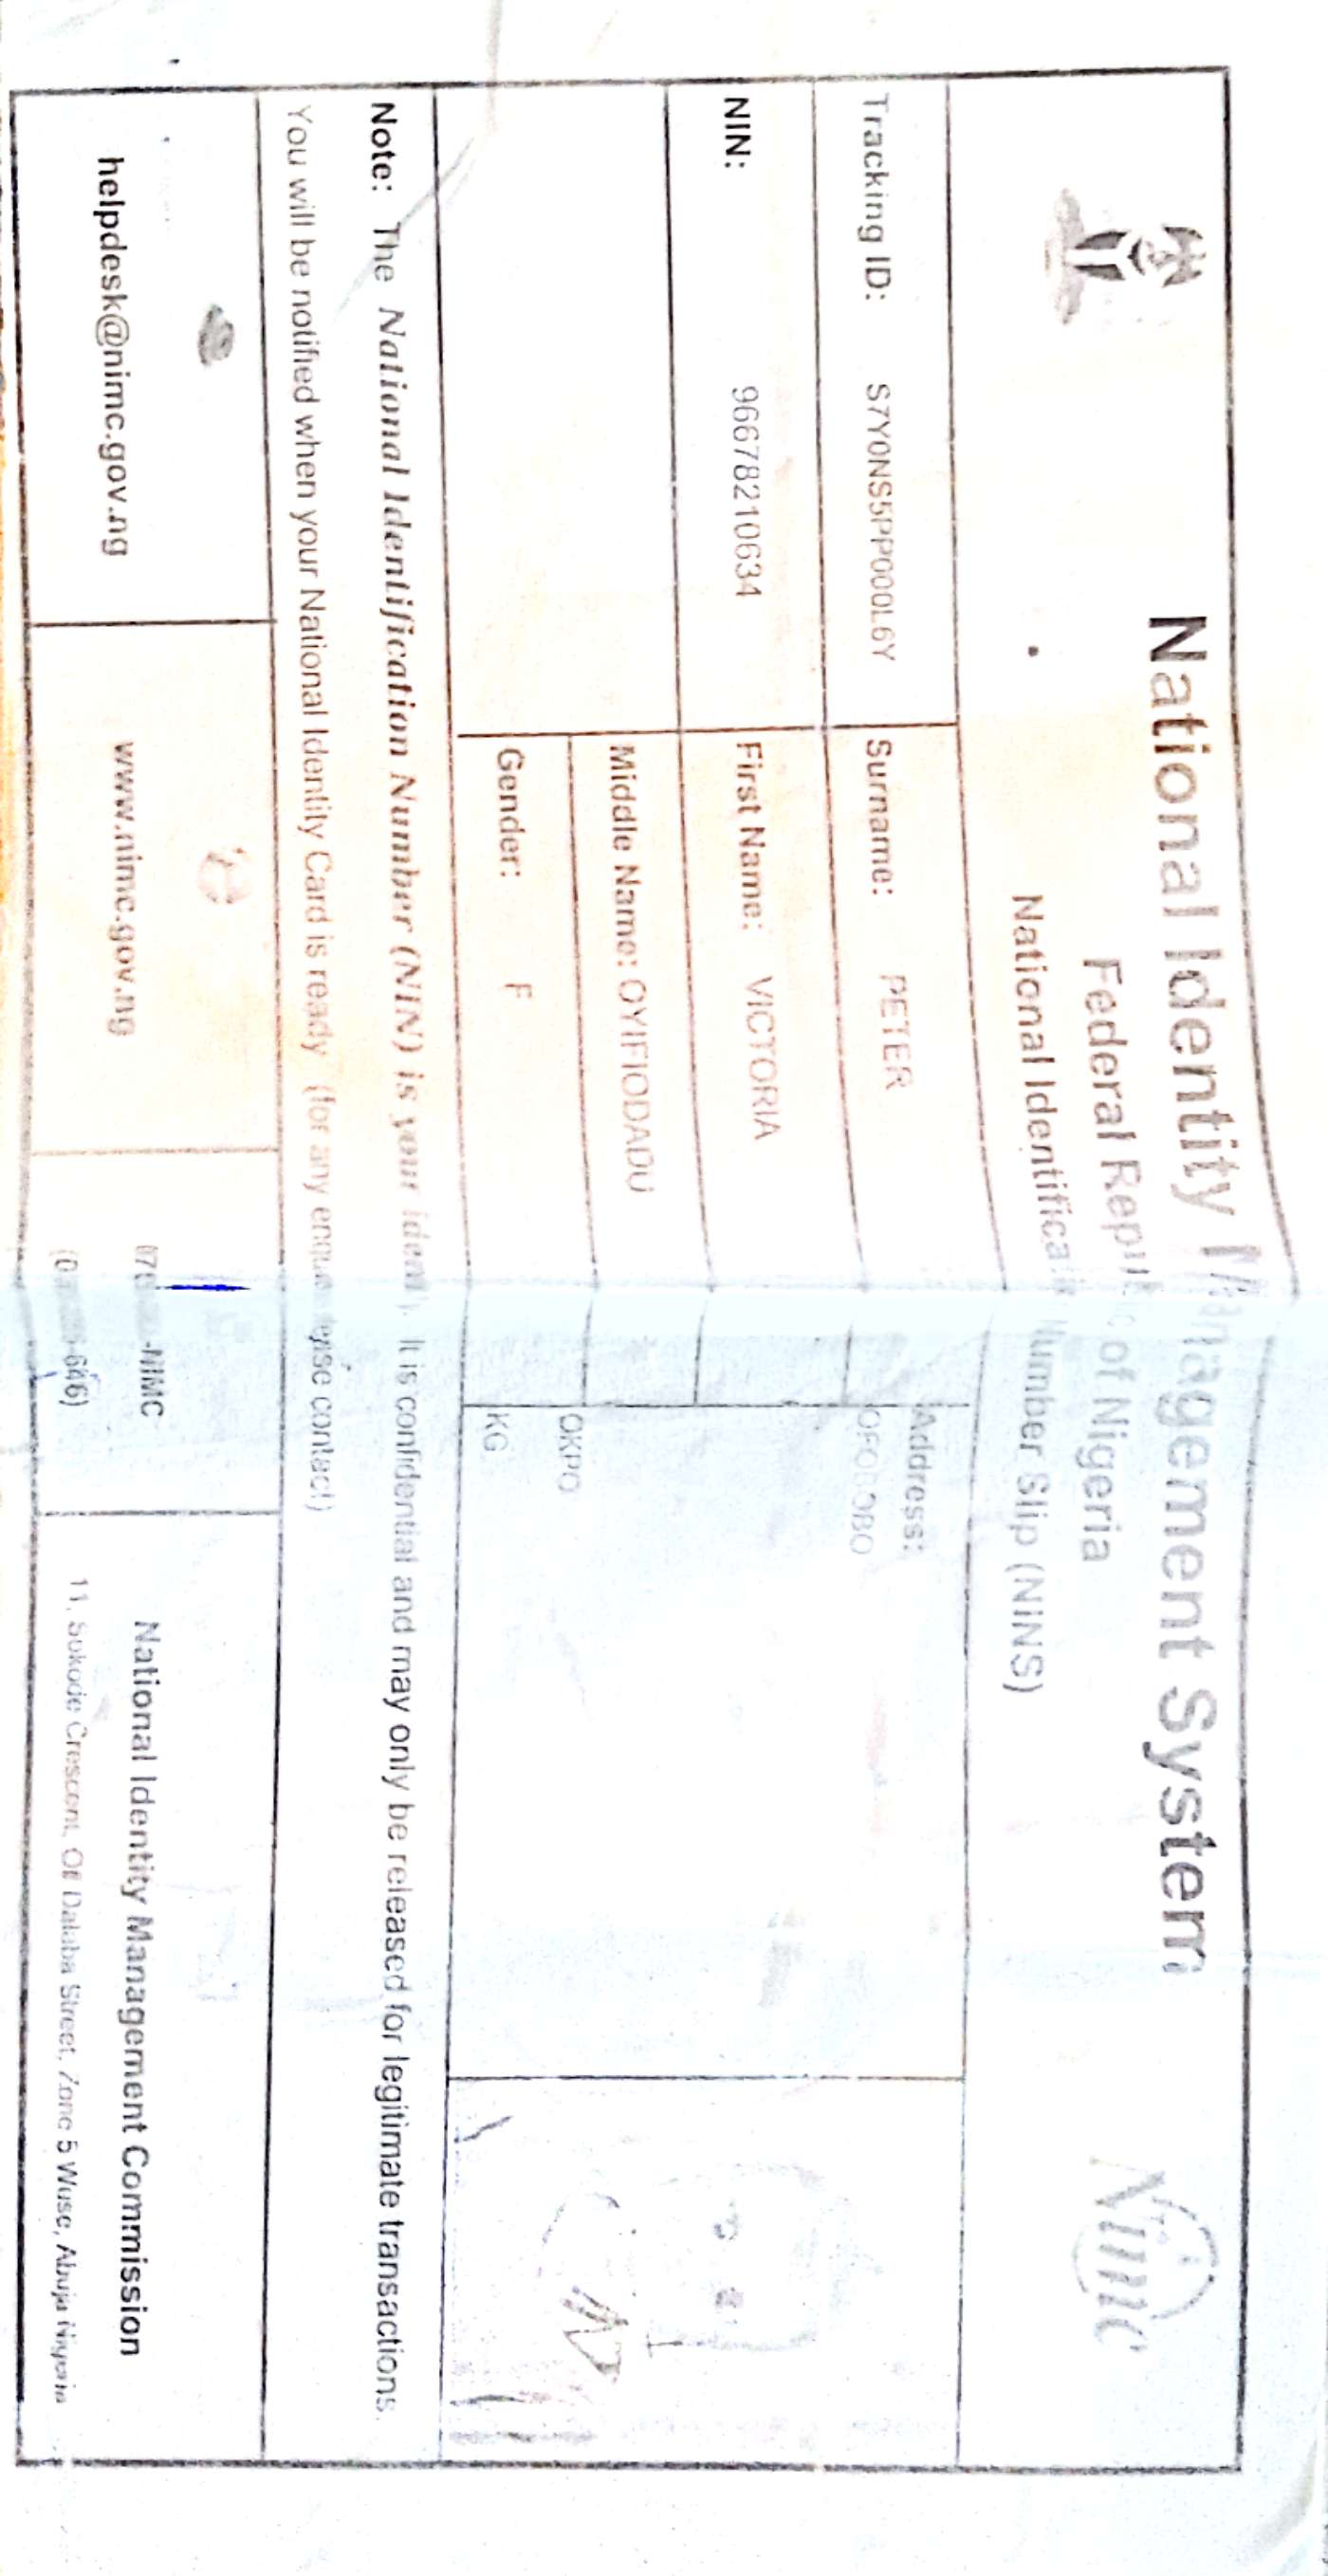 National Identity Management System
Federal Republic of Nigeria
National Identification Number Slip (NINS)
Nimc
Tracking ID: S7Y0NS5PP000L6Y
Surname: PETER
Address:
NIN: 96678210634
First Name: VICTORIA
Middle Name: OYIFIODADU
OKPO
Gender: F
KG
Note: The National Identification Number (NIN) is your identity. It is confidential and may only be released for legitimate transactions.
You will be notified when your National Identity Card is ready (for any enquiries please contact)
helpdesk@nimc.gov.ng
www.nimc.gov.ng
-NIMC
-646)
National Identity Management Commission
11, Sokode Crescent, Off Dalaba Street, Zone 5 Wuse, Abuja Nigeria